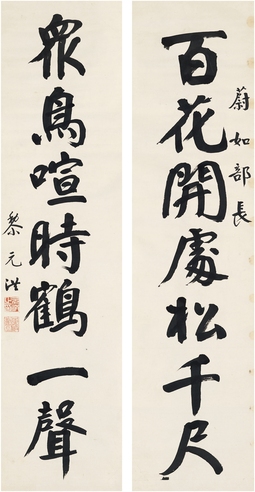 蔚如部長
百花開處松千尺
眾鳥喧時鶴一聲
黎元洪